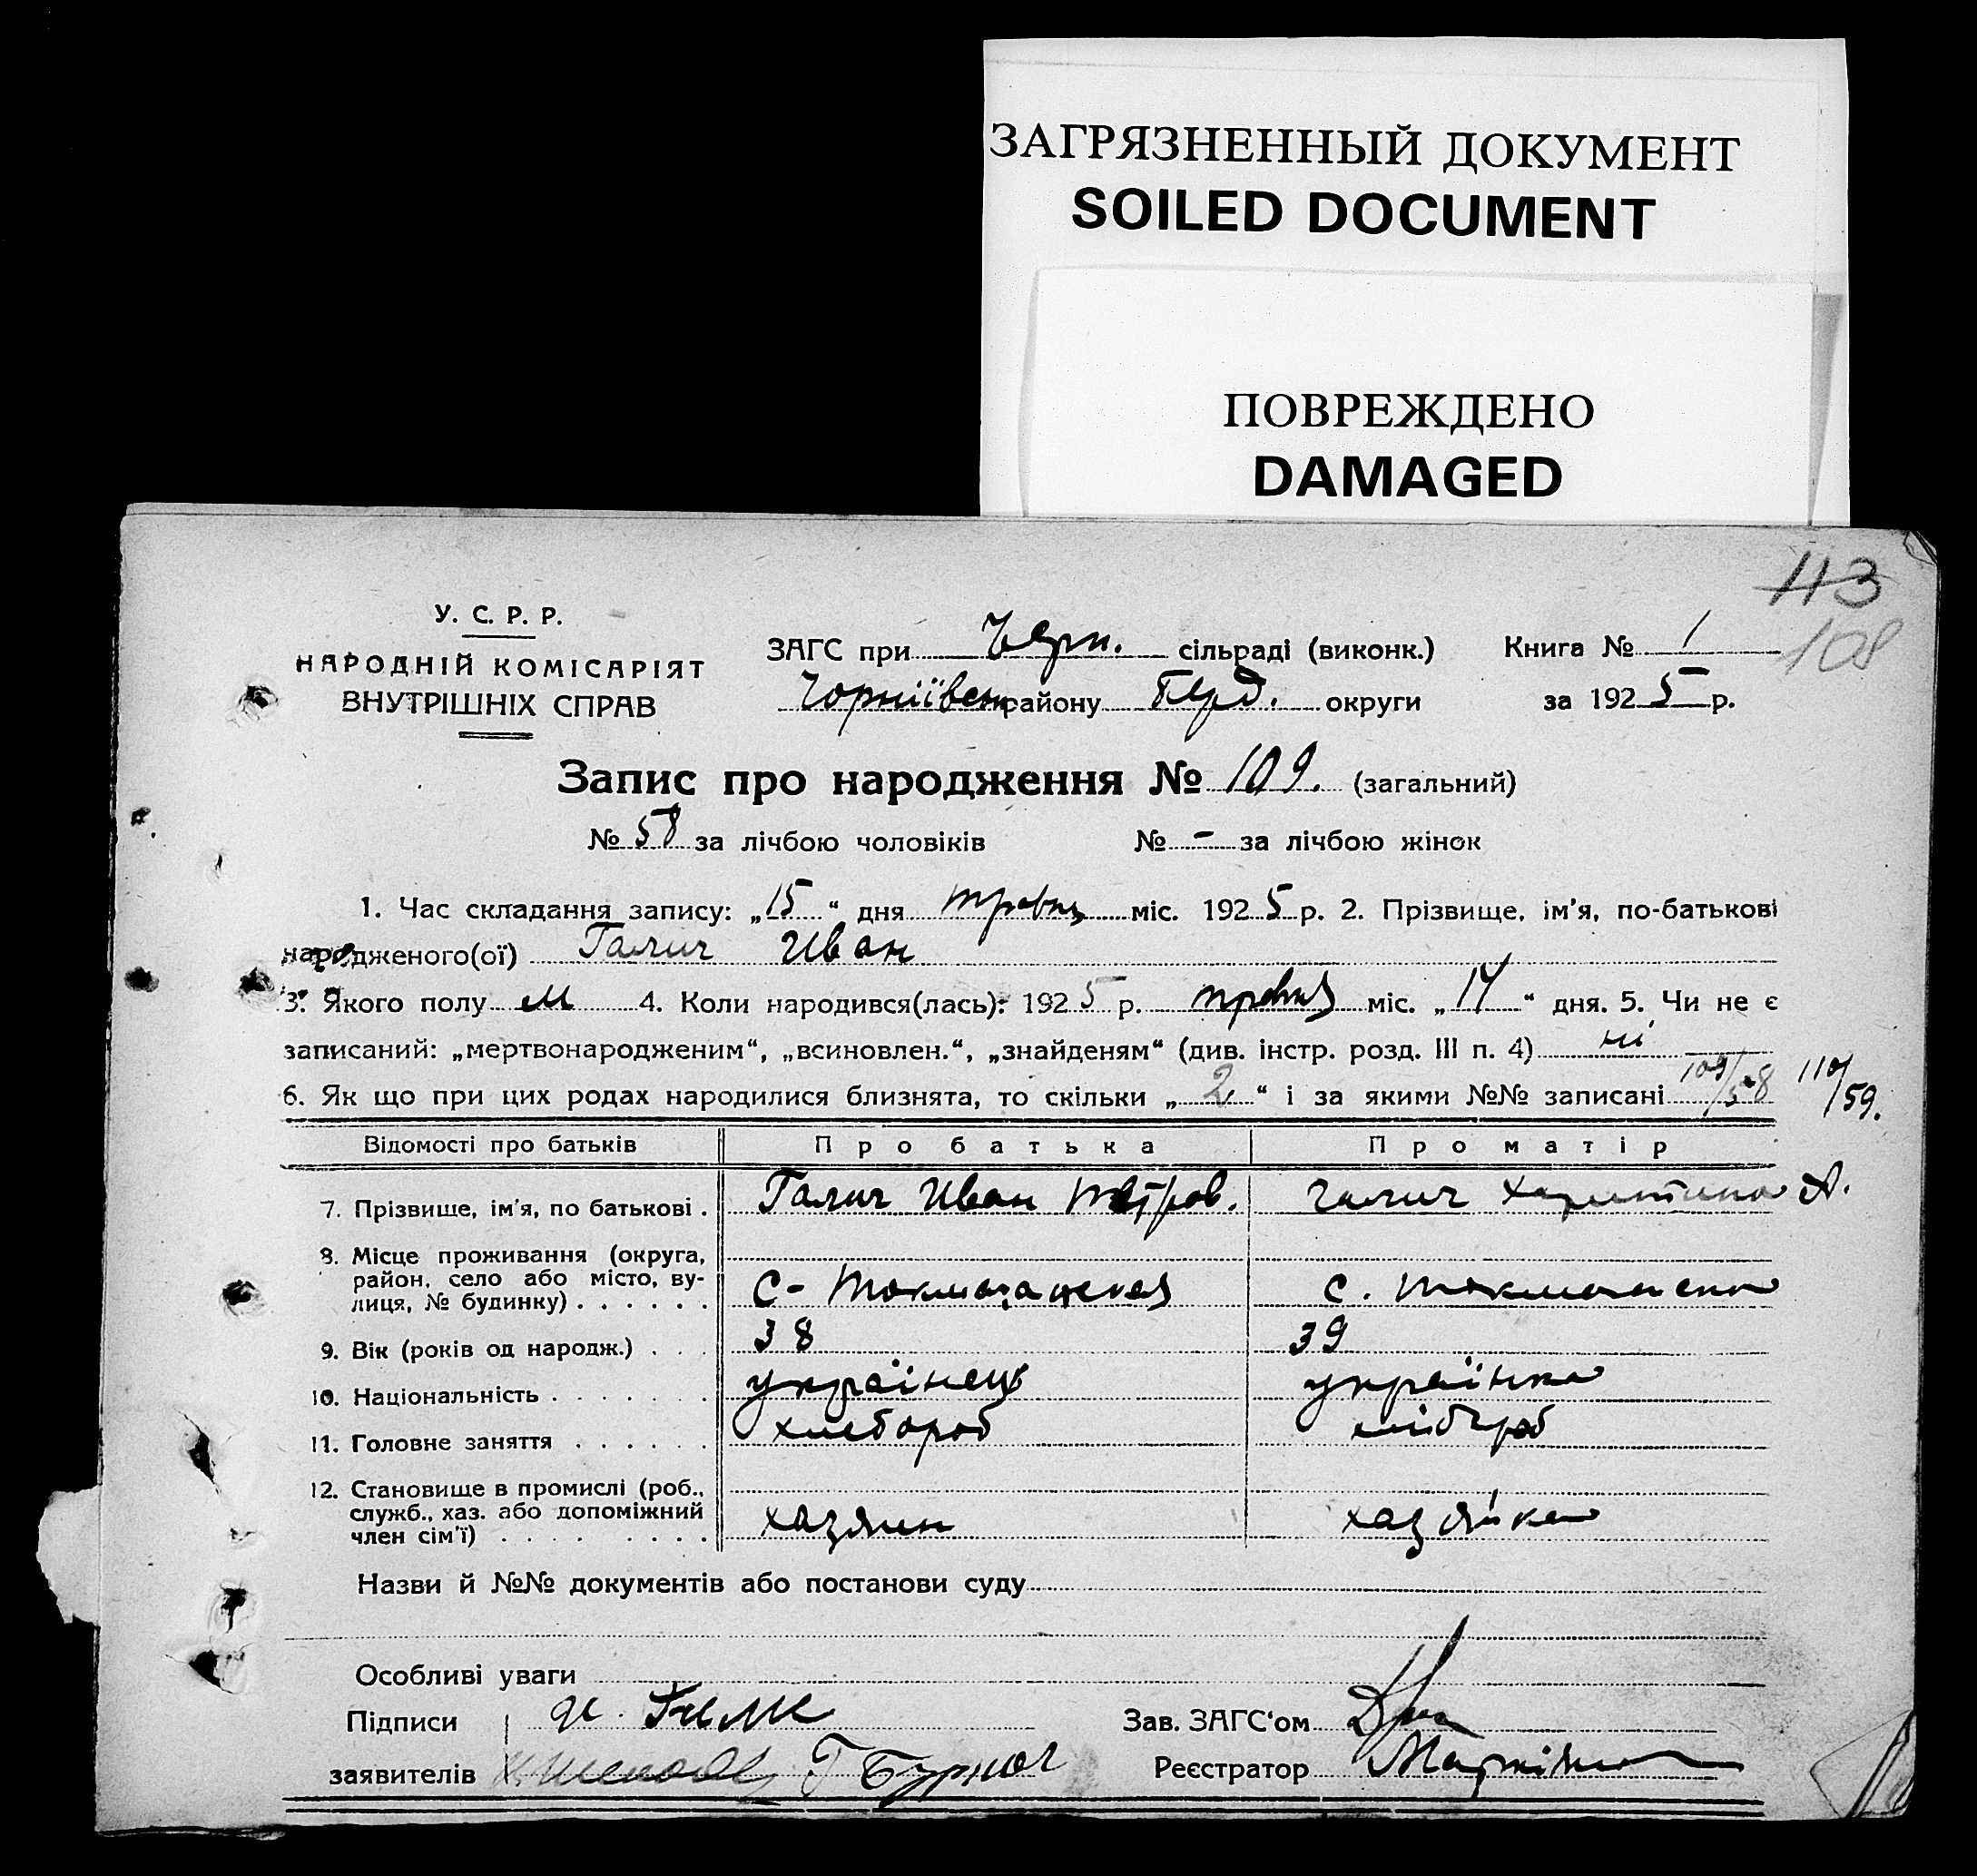 ЗАГРЯЗНЕННЫЙ ДОКУМЕНТ
SOILED DOCUMENT
ПОВРЕЖДЕНО
DAMAGED
113
108
У. С. Р. Р.
НАРОДНІЙ КОМІСАРІЯТ
ВНУТРІШНІХ СПРАВ
ЗАГС при Черн. сільраді (виконк.) Книга № 1
Чорніївськ району Берд. округи за 1925 р.
Запис про народження № 109. (загальний)
№ 58 за лічбою чоловіків № - за лічбою жінок
1. Час складання запису: „15“ дня травня міс. 1925 р. 2. Прізвище, ім'я, по-батькові
народженого(ої) Галич Иван
3. Якого полу м 4. Коли народився(лась): 1925 р. травня міс. „14“ дня. 5. Чи не є
записаний: „мертвонародженим“, „всиновлен.“, „знайденям“ (див. інстр. розд. III п. 4) ні
6. Як що при цих родах народилися близнята, то скільки „2“ і за якими №№ записані 109/58 110/59.
Відомості про батьків Про батька Про матір
7. Прізвище, ім'я, по батькові . Галич Иван Петров. Галич Харитина А.
8. Місце проживання (округа,
район, село або місто, ву-
лиця, № будинку) . . . . . . с - Токмачанська с. Токмачанська
9. Вік (років од народж.) . . . 38 39
10. Національність . . . . . . . українець українка
11. Головне заняття . . . . . . хлебороб хлібороб
12. Становище в промислі (роб.,
служб., хаз. або допоміжний
член сім'ї) . . . . . . . . хазяин хазяйка
Назви й №№ документів або постанови суду
Особливі уваги
Підписи Зав. ЗАГС'ом
заявителів Г Бурног Реєстратор